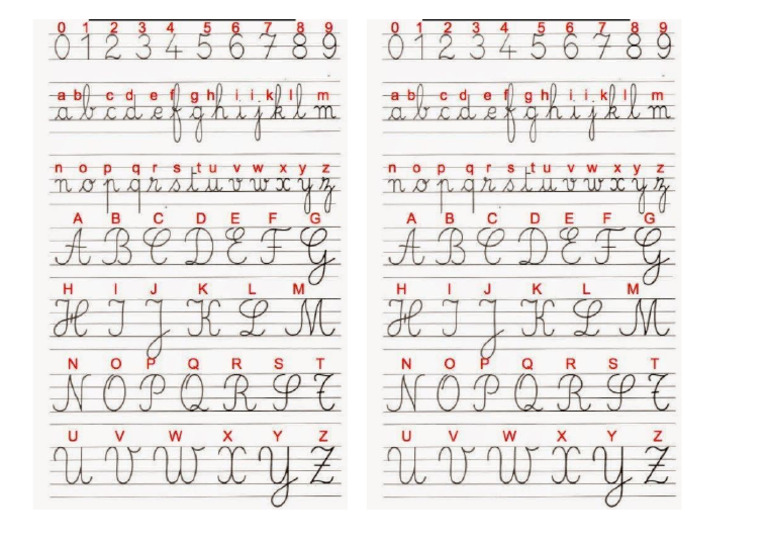 0 1 2 3 4 5 6 7 8 9
0 1 2 3 4 5 6 7 8 9
a b c d e f g h i j k l m
a b c d e f g h i j k l m
n o p q r s t u v w x y z
n o p q r s t u v w x y z
A B C D E F G
A B C D E F G
H I J K L M
H I J K L M
N O P Q R S T
N O P Q R S T
U V W X Y Z
U V W X Y Z
0 1 2 3 4 5 6 7 8 9
0 1 2 3 4 5 6 7 8 9
a b c d e f g h i j k l m
a b c d e f g h i j k l m
n o p q r s t u v w x y z
n o p q r s t u v w x y z
A B C D E F G
A B C D E F G
H I J K L M
H I J K L M
N O P Q R S T
N O P Q R S T
U V W X Y Z
U V W X Y Z